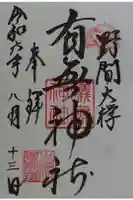 野間大欅
有無神社
奉拝
令和六年八月
十三日